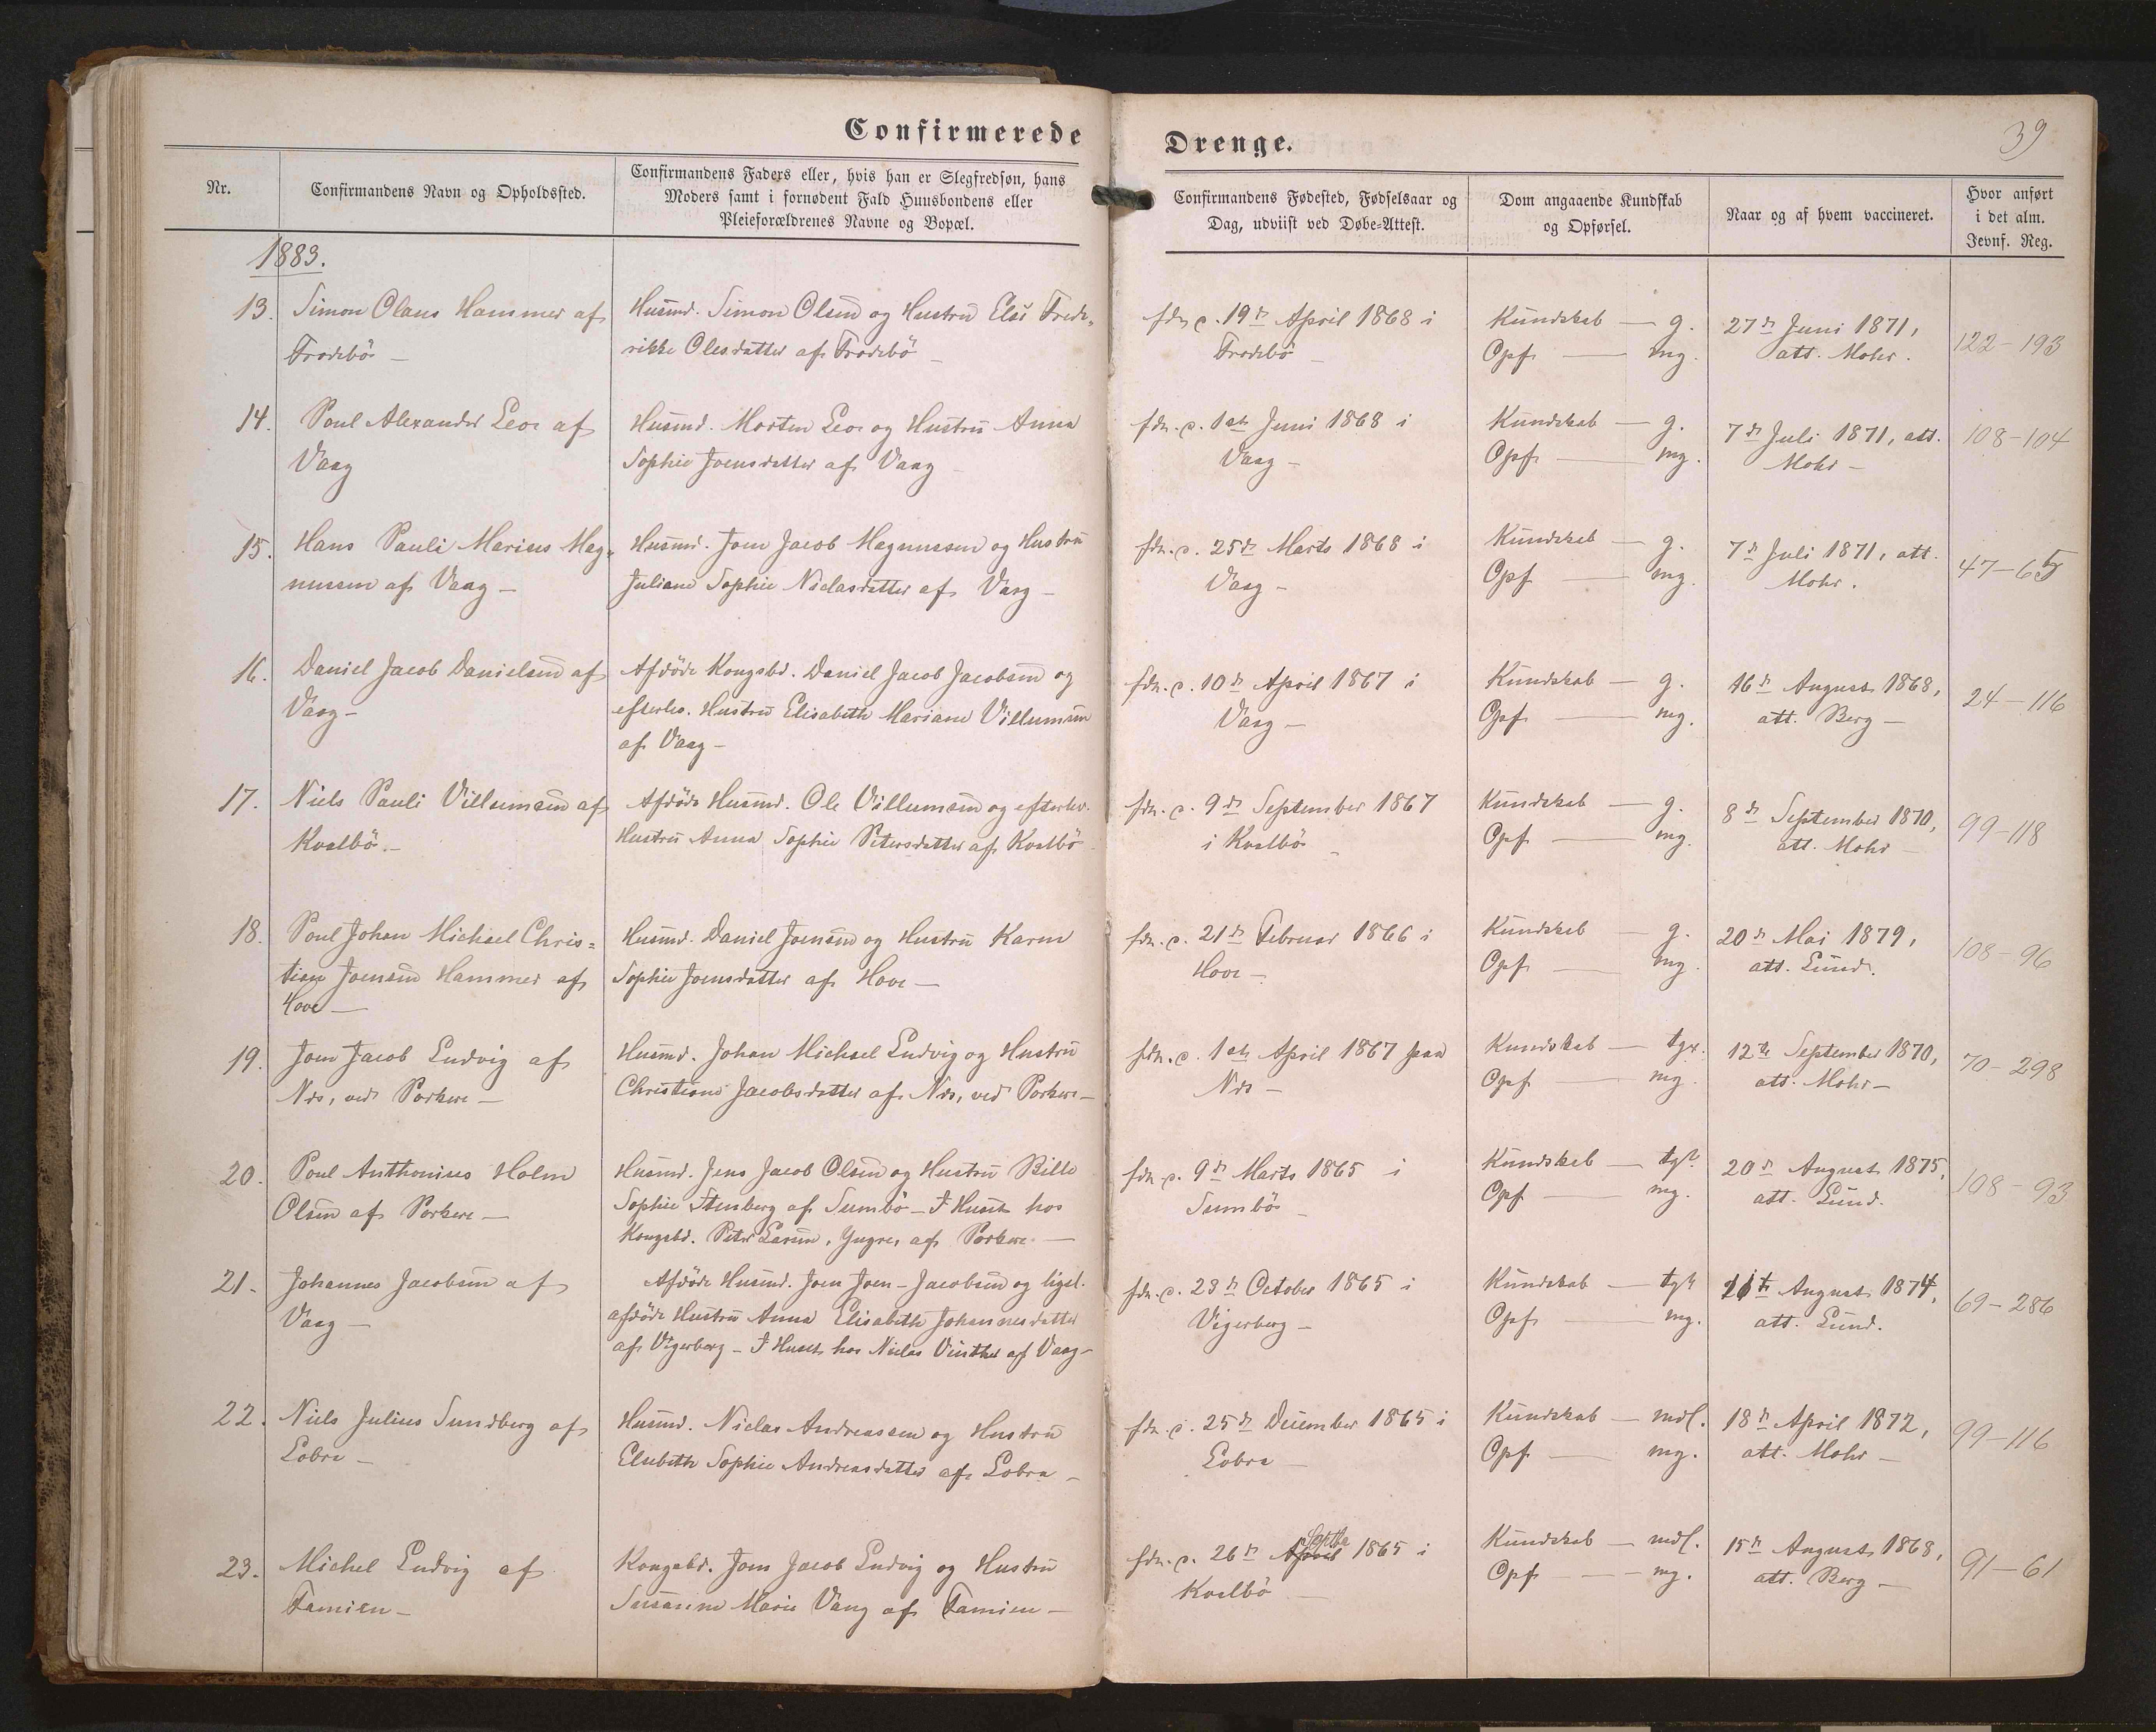 Confirmerede Drenge.
39
Nr.
Confirmandens Navn og Opholdssted.
Confirmandens Faders eller, hvis han er Slegfredsøn, hans
Moders samt i fornødent Fald Huusbondens eller
Pleieforældrenes Navne og Bopæl.
Confirmandens Fødested, Fødselsaar og
Dag, udviist ved Døbe=Attest.
Dom angaaende Kundskab
og Opførsel.
Naar og af hvem vaccineret.
Hvor anført
i det alm.
Jevnf. Reg.
1883.
13.
Simon Olaus Hammer af
Frodebö –
Husmd. Simon Olsen og Hustru Else Frede=
rikke Olesdatter af Frodebö –
fdn. d. 19de April 1868 i
Frodebö –
Kundskab — g.
Opf. — mg.
27de Juni 1871,
att. Mohr.
122–193
14.
Poul Alexander Leoe af
Vaag
Husmd. Morten Leoe og Hustru Anna
Sophie Joensdatter af Vaag –
fdn. d. 1ste Juni 1868 i
Vaag –
Kundskab — g.
Opf. — mg.
7de Juli 1871, att.
Mohr –
108–104
15.
Hans Pauli Marius Mag=
nussen af Vaag –
Husmd. Joen Jacob Magnussen og Hustru
Juliane Sophie Niclasdatter af Vaag –
fdn. d. 25de Marts 1868 i
Vaag –
Kundskab — g.
Opf. — mg.
7de Juli 1871, att.
Mohr.
47–65
16.
Daniel Jacob Danielsen af
Vaag –
Afdöde Kongsbd. Daniel Jacob Jacobsen og
efterlev. Hustru Elisabeth Mariane Villumsen
af Vaag –
fdn. d. 10de April 1867 i
Vaag –
Kundskab — g.
Opf. — mg.
16de August 1868,
att. Berg –
24–116
17.
Niels Pauli Villumsen af
Kvalbö. –
Afdöde Husmd. Ole Villumsen og efterlev.
Hustru Anna Sophie Petersdatter af Kvalbö –
fdn. d. 9de September 1867
i Kvalbö –
Kundskab — g.
Opf. — mg.
8de September 1870,
att. Mohr –
99–118
18.
Poul Johan Michael Chris=
tian Joensen Hammer af
Hove –
Husmd. Daniel Joensen og Hustru Karen
Sophie Joensdatter af Hove –
fdn. d. 21de Februar 1866 i
Hove –
Kundskab — g.
Opf. — mg.
20de Mai 1879,
att. Lund.
108–96
19.
Joen Jacob Ludvig af
Næs, ved Porkere –
Husmd. Johan Michael Ludvig og Hustru
Christiane Jacobsdatter af Næs, ved Porkere –
fdn. d. 1ste April 1867 paa
Næs –
Kundskab — tg.
Opf. — mg.
12te September 1870,
att. Mohr –
70–298
20.
Poul Anthonius Holm
Olsen af Porkere –
Husmd. Jens Jacob Olsen og Hustru Bille
Sophie Stenberg af Sumbö – I Huset hos
Kongsbd. Peter Larsen, Yngre, af Porkere –
fdn. d. 9de Marts 1865 i
Sumbö –
Kundskab — tg.
Opf. — mg.
20de August 1875,
att. Lund.
108–93
21.
Johannes Jacobsen af
Vaag –
Afdöde Husmd. Joen Joen-Jacobsen og ligel.
afdöde Hustru Anna Elisabeth Johannesdatter
af Vigerberg – I Huset hos Niclas Vinther af Vaag –
fdn. d. 23de October 1865 i
Vigerberg –
Kundskab — tg.
Opf. — mg.
August 1874,
att. Lund.
69–286
22.
Niels Julius Sundberg af
Lobra –
Husmd. Niclas Andreassen og Hustru
Elsebeth Sophie Andreasdatter af Lobra –
fdn. d. 25de December 1865 i
Lobra –
Kundskab — mdl.
Opf. — mg.
18de April 1872,
att. Mohr –
99–116
23.
Michel Ludvig af
Famien –
Kongsbd. Joen Jacob Ludvig og Hustru
Susanne Marie Vang af Famien –
Septbr
fdn. d. 26de April 1865 i
Kvalbö –
Kundskab — mdl.
Opf. — mg.
15de August 1868,
att. Berg –
91–61